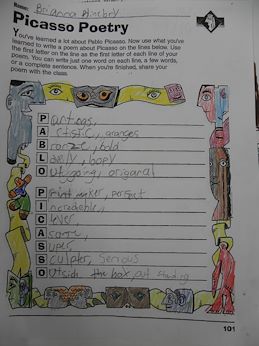 Name: Brianna
Picasso Poetry
You've learned a lot about Pablo Picasso. Now use what you've
learned to write a poem about Picasso on the lines below. Use
the first letter on the line as the first letter of each line of your
poem. You can write just one word on each line, a few words,
or a complete sentence. When you're finished, share your
poem with the class.
P
Artistic,
B bold
Lovly, happy
Outgoing, origanal
P
Increadable,
Clever,
A
Super,
Sculpter, Serious
Outside the box, out standing
101